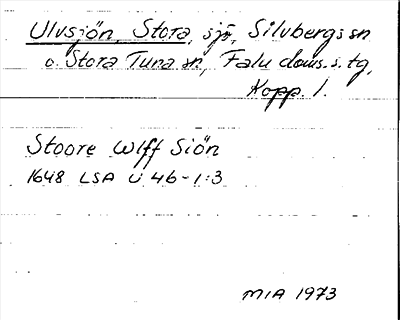 Ulvsjön, Stora, sjö, Silvbergs sn
o. Stora Tuna sn, Falu doms. s. tg,
Kopp. l.
Stoore Wlff Siön
1648 LSA U 46-1:3
MIA 1973